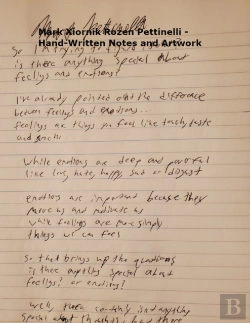 Mark Xiornik Rozen Pettinelli -
Hand-Written Notes and Artwork
So I'm trying to figure
is there anything special about
feelings and emotions?
I've already pointed out the difference
between feelings and emotions...
feelings are things you feel like touch, taste
and
while emotions are deep and powerful
like love, hate, happy, sad or disgust
emotions are important because they
move us and motivate us
while feelings are
things we can feel
So that brings up the questions
is there anything special about
feelings? or emotions?
well, there certainly isn't anything
special about
B